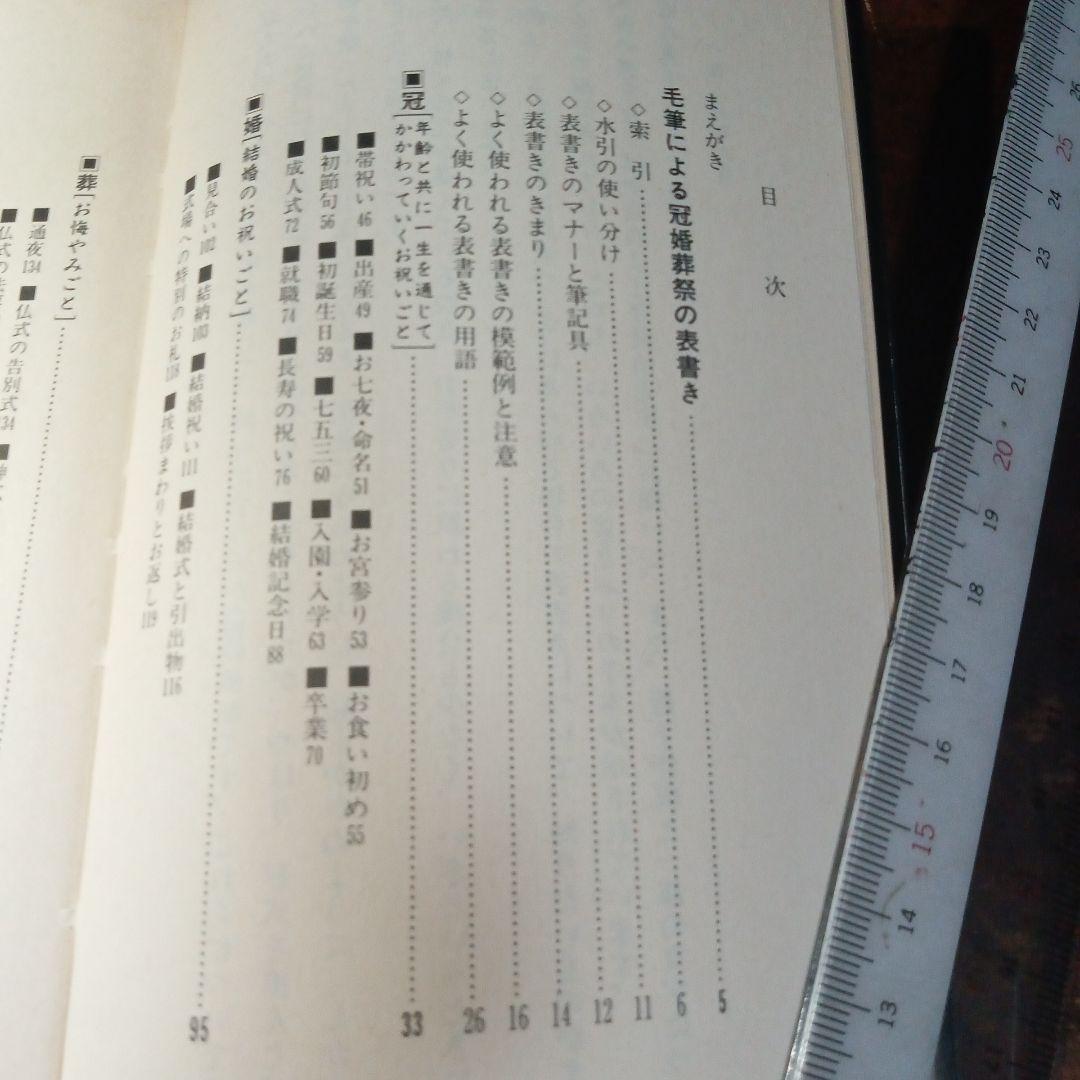 目次
まえがき
毛筆による冠婚葬祭の表書き 5
◇索引 6
◇水引の使い分け 11
◇表書きのマナーと筆記具 12
◇表書きのきまり 14
◇よく使われる表書きの模範例と注意 16
◇よく使われる表書きの用語 26
■冠［年齢と共に一生を通じてかかわっていくお祝いごと］ 33
■帯祝い46 ■出産49 ■お七夜・命名51 ■お宮参り53 ■お食い初め55
■初節句56 ■初誕生日59 ■七五三60 ■入園・入学63 ■卒業70
■成人式72 ■就職74 ■長寿の祝い76 ■結婚記念日88
■婚［結婚のお祝いごと］ 95
■見合い102 ■結納103 ■結婚祝い111 ■結婚式と引出物116
■式場への特別のお礼118 ■挨拶まわりとお返し119
■葬［お悔やみごと］
■通夜134 ■仏式の告別式134
■仏式の
25
24
23
22
21
20
19
18
17
16
15
14
13